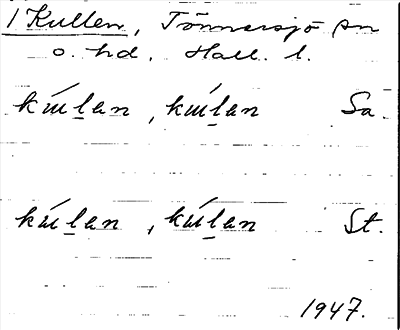 1 Kullen, Tönnersjö sn
o. hd. Hall. l.
kɯ́lan, kɯ́lan Sa.
kɯ́lan, kɯ́lan St.
1947.